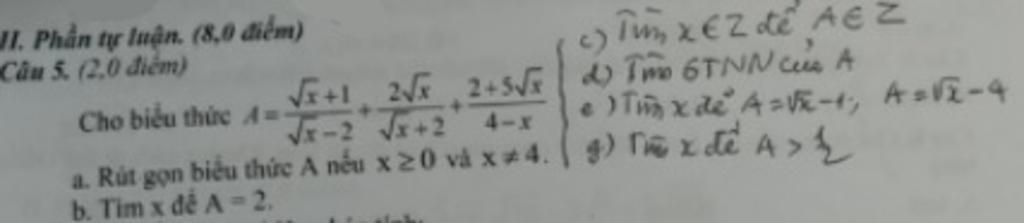 II. Phần tự luận. (8,0 điểm)
Câu 5. (2,0 điểm)
Cho biểu thức A = (√x+1)/(√x−2) + (2√x)/(√x+2) + (2+5√x)/(4−x)
a. Rút gọn biểu thức A nếu x ≥ 0 và x ≠ 4.
b. Tìm x để A = 2.
c) Tìm x ∈ Z để A ∈ Z
d) Tìm GTNN của A
e) Tìm x để A = √x − 1; A = √x − 4
g) Tìm x để A > 1/2